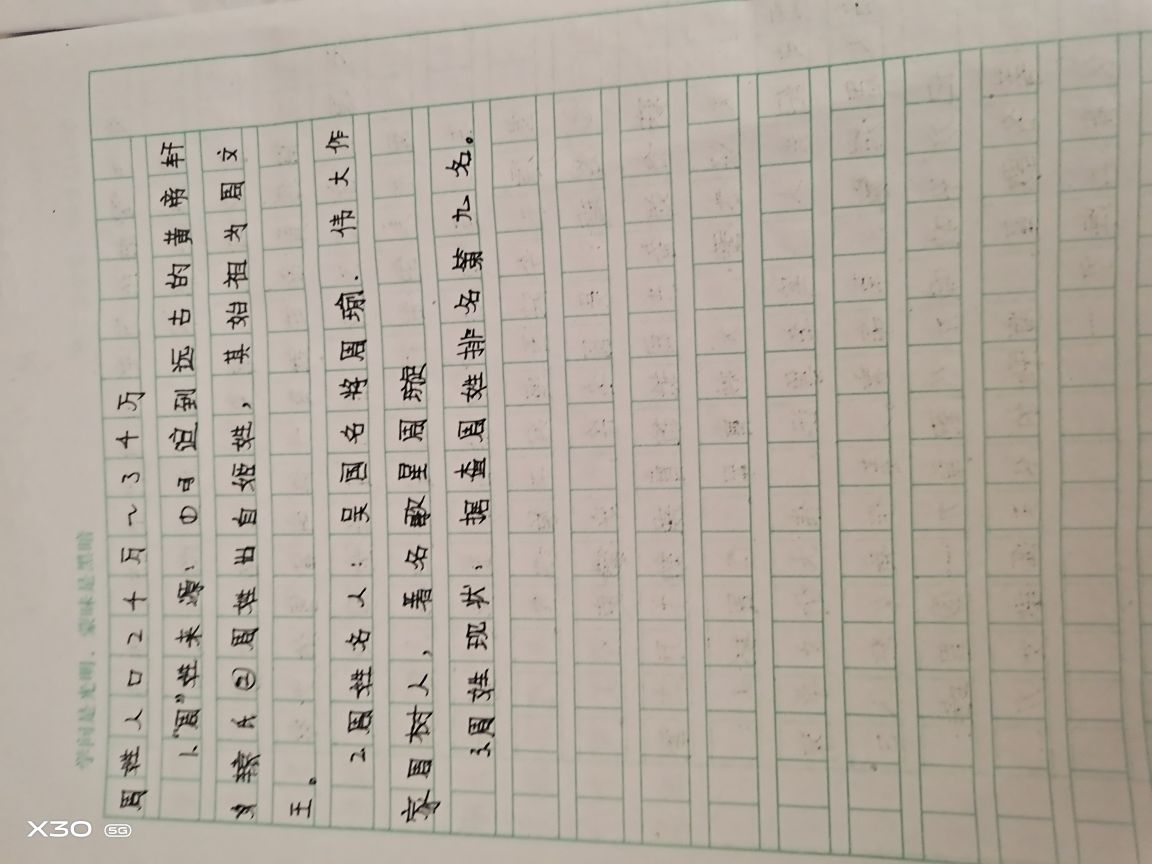 学问是光明，蒙昧是黑暗
周姓人口24万~34万
1."周"姓来源：①可追到远古的黄帝轩
辕氏②周姓出自姬姓，其始祖为周文
王。
2.周姓名人：吴国名将周瑜.伟大作
家周树人，著名歌星周璇
3.周姓现状：据查周姓排名第九名。
X30 5G